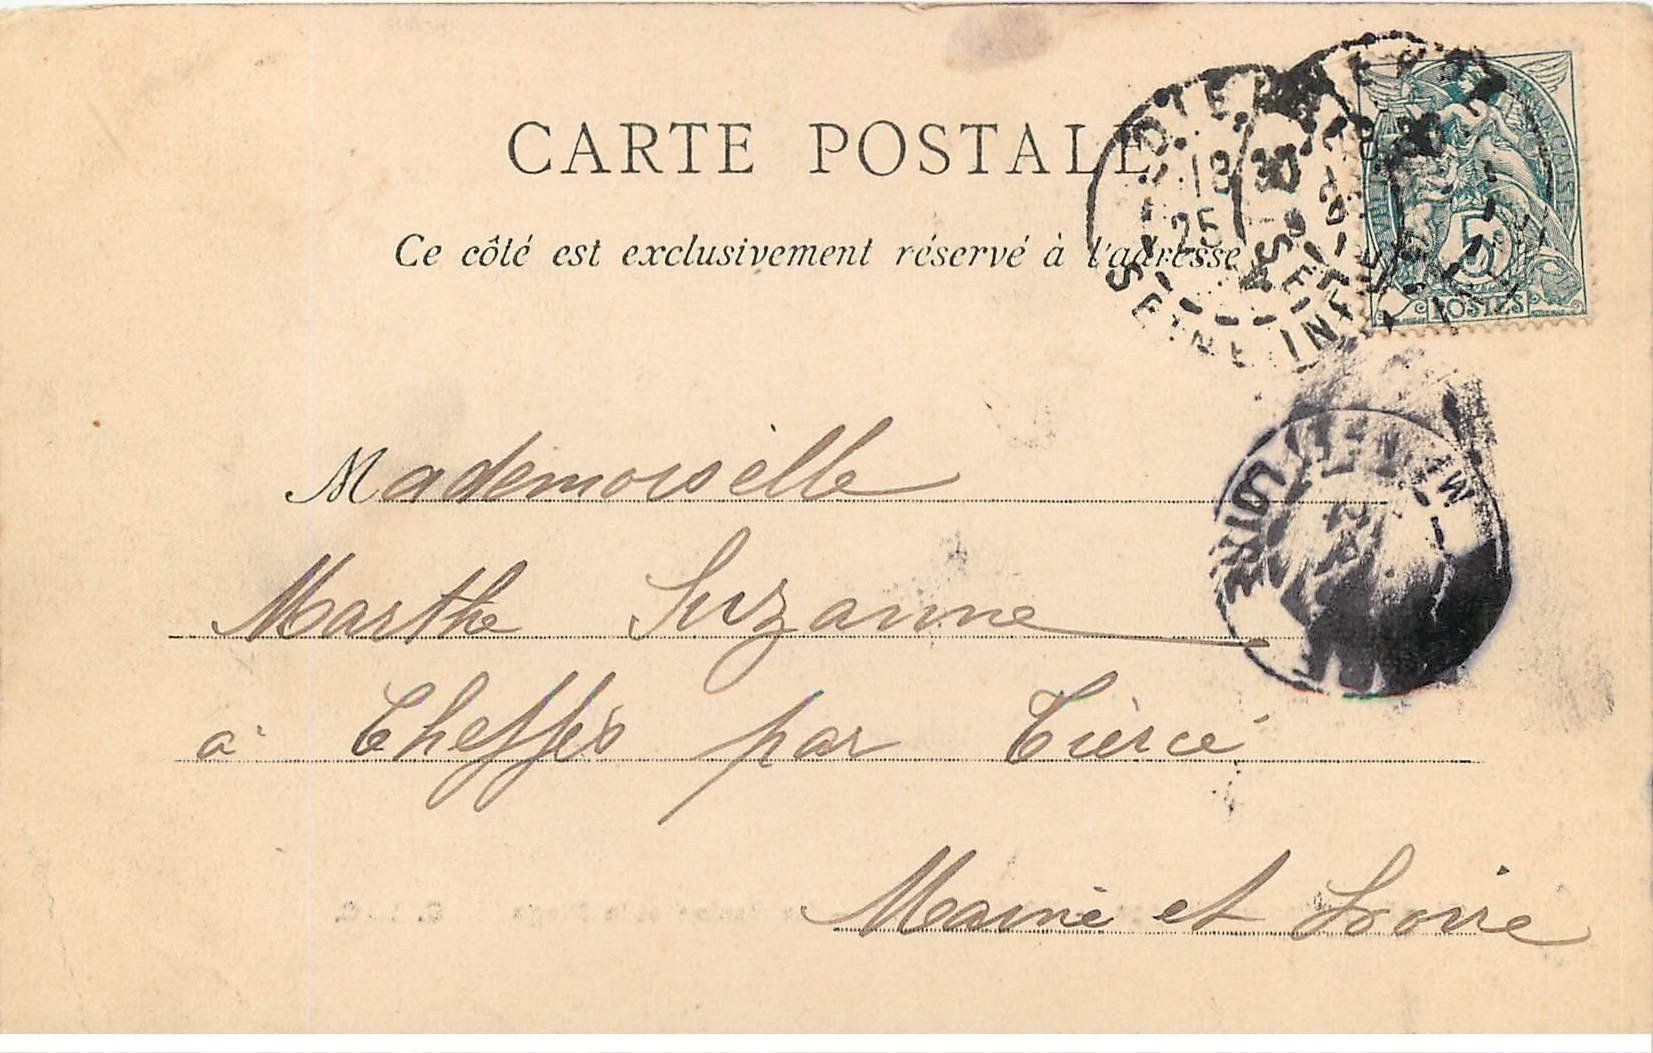 CARTE POSTALE
Ce côté est exclusivement réservé à l'adresse
DIEPPE
18 30
25
SEINE INFRE
5
POSTES
Mademoiselle
Marthe Suzanne
à Cheffes par Tiercé
Maine et Loire